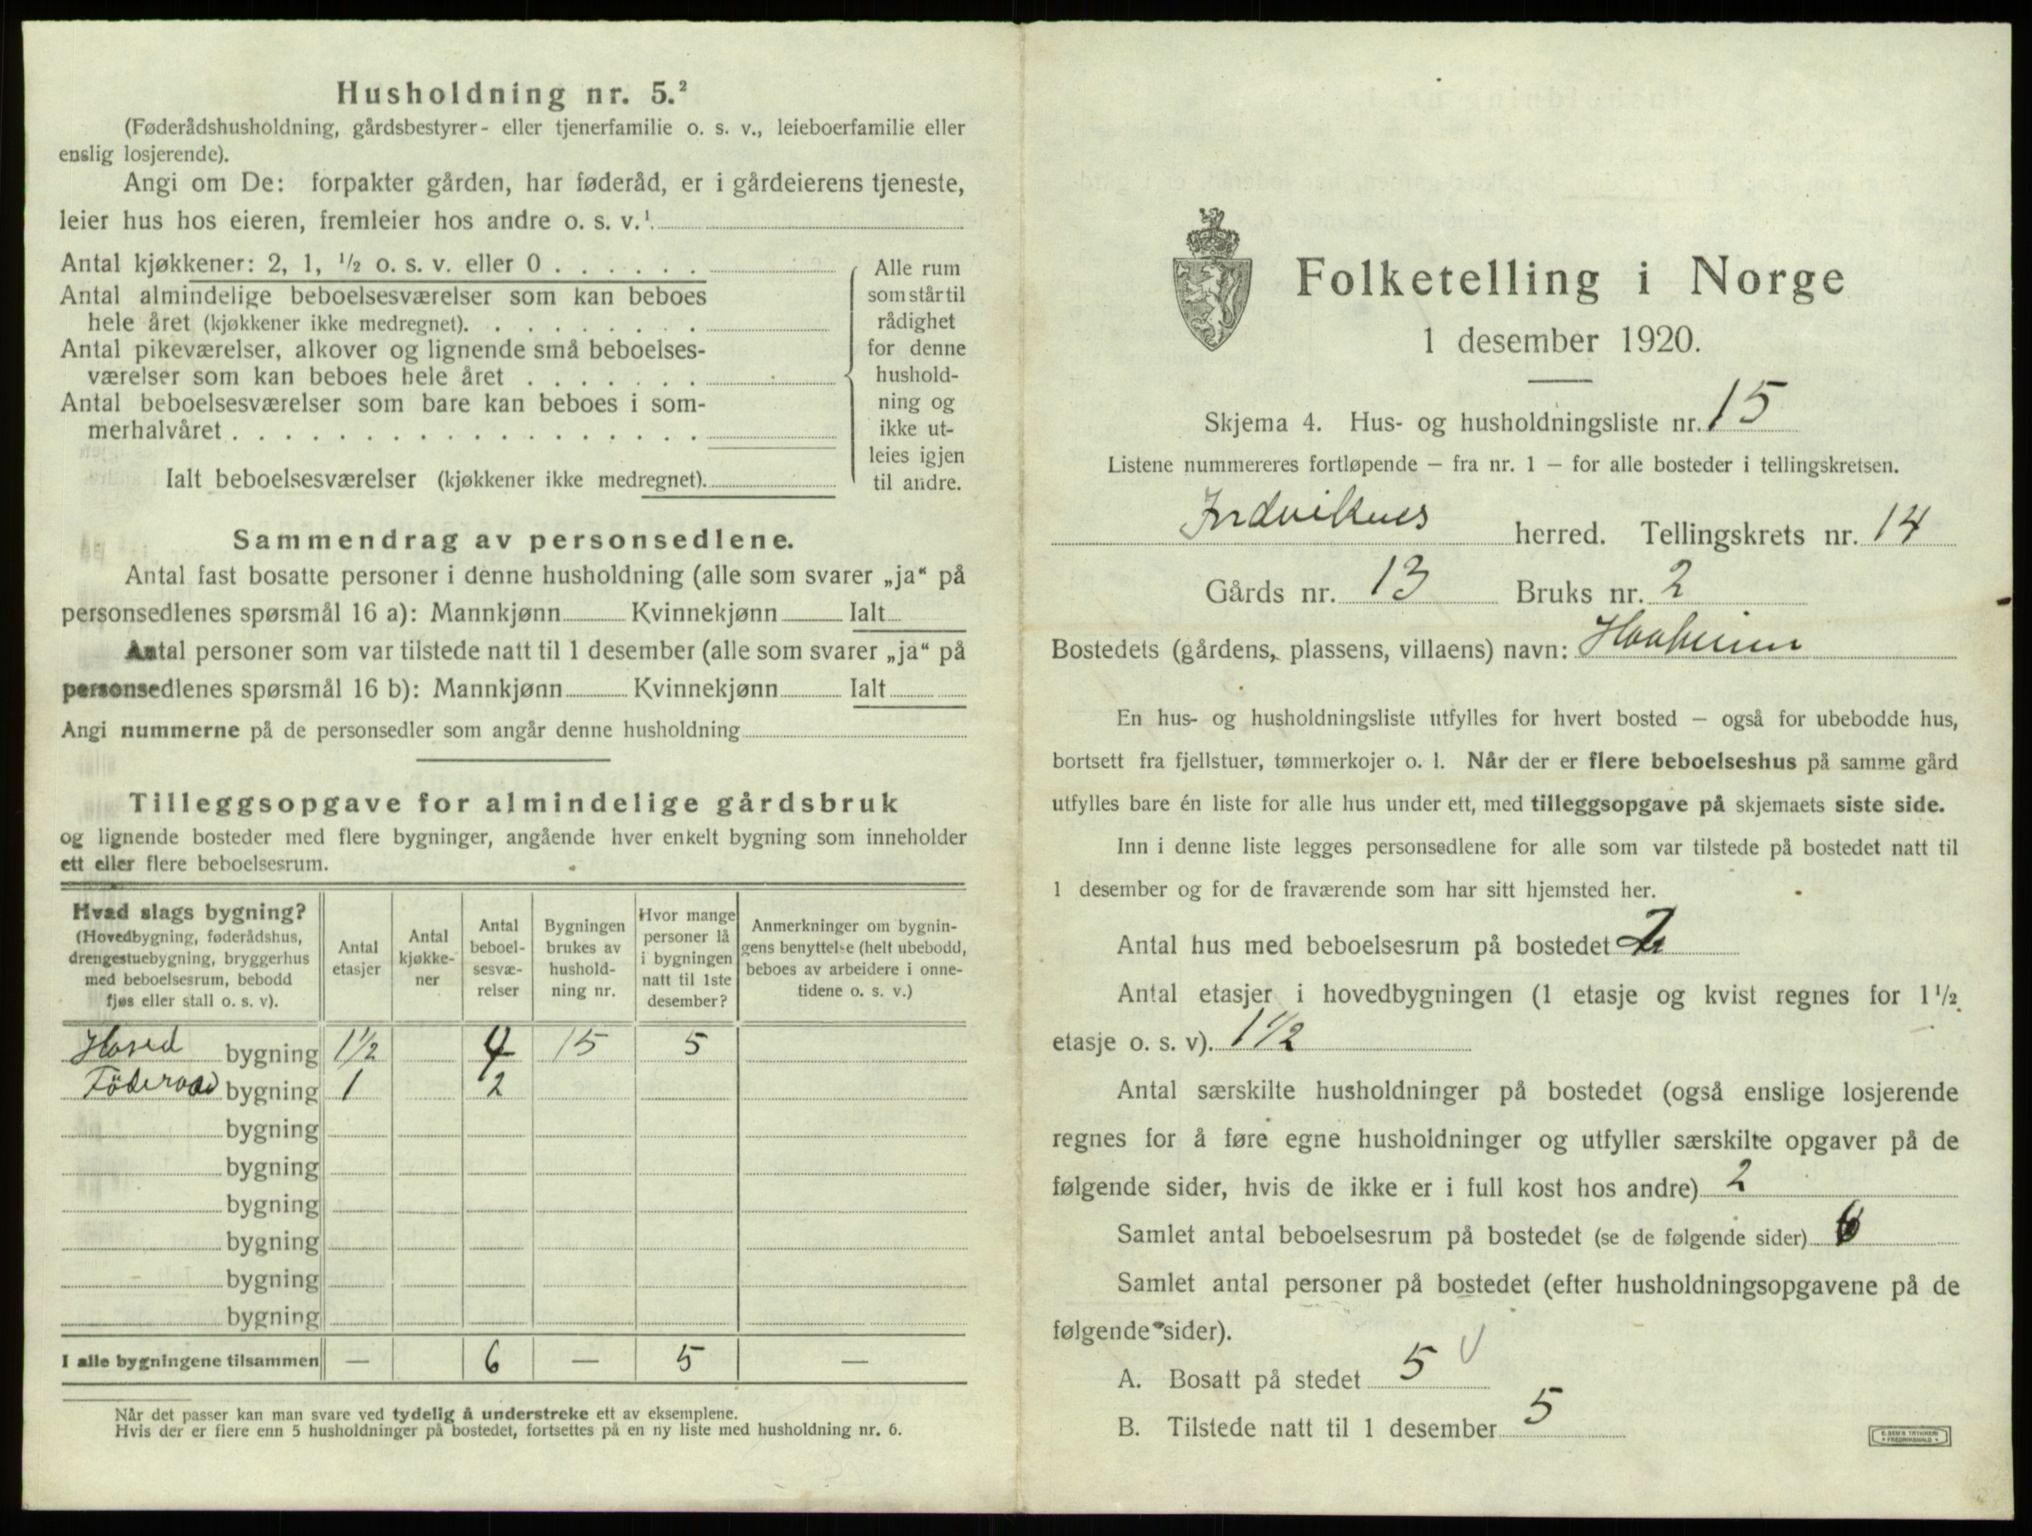 Husholdning nr. 5.²
(Føderådshusholdning, gårdsbestyrer- eller tjenerfamilie o. s. v., leieboerfamilie eller
enslig losjerende).
Angi om De: forpakter gården, har føderåd, er i gårdeierens tjeneste,
leier hus hos eieren, fremleier hos andre o. s. v.¹
Antal kjøkkener: 2, 1, ½ o. s. v. eller 0 . . . . . .
Antal almindelige beboelsesværelser som kan beboes
hele året (kjøkkener ikke medregnet). . . . . . . . .
Antal pikeværelser, alkover og lignende små beboelses-
værelser som kan beboes hele året . . . . . . .
Antal beboelsesværelser som bare kan beboes i som-
merhalvåret . . . . . . . . . . . . . . . . .
Ialt beboelsesværelser (kjøkkener ikke medregnet).
Alle rum
som står til
rådighet
for denne
hushold-
ning og
ikke ut-
leies igjen
til andre.
Sammendrag av personsedlene.
Antal fast bosatte personer i denne husholdning (alle som svarer „ja“ på
personsedlenes spørsmål 16 a): Mannkjønn Kvinnekjønn Ialt
Antal personer som var tilstede natt til 1 desember (alle som svarer „ja“ på
personsedlenes spørsmål 16 b): Mannkjønn Kvinnekjønn Ialt
Angi nummerne på de personsedler som angår denne husholdning
Tilleggsopgave for almindelige gårdsbruk
og lignende bosteder med flere bygninger, angående hver enkelt bygning som inneholder
ett eller flere beboelsesrum.
Hvad slags bygning?
(Hovedbygning, føderådshus,
drengestuebygning, bryggerhus
med beboelsesrum, bebodd
fjøs eller stall o. s. v).
Antal
etasjer
Antal
kjøkke-
ner
Antal
beboel-
sesvæ-
relser
Bygningen
brukes av
hushold-
ning nr.
Hvor mange
personer lå
i bygningen
natt til 1ste
desember?
Anmerkninger om bygnin-
gens benyttelse (helt ubebodd,
beboes av arbeidere i onne-
tidene o. s. v.)
Hoved bygning 1½ 4 15 5
Föderaad bygning 1 2
bygning
bygning
bygning
bygning
bygning
bygning
I alle bygningene tilsammen — 6 — 5 —
Når det passer kan man svare ved tydelig å understreke ett av eksemplene.
Hvis der er flere enn 5 husholdninger på bostedet, fortsettes på en ny liste med husholdning nr. 6.
Folketelling i Norge
1 desember 1920.
Skjema 4. Hus- og husholdningsliste nr. 15
Listene nummereres fortløpende — fra nr. 1 — for alle bosteder i tellingskretsen.
herred. Tellingskrets nr. 14
Gårds nr. 13 Bruks nr. 2
Bostedets (gårdens, plassens, villaens) navn:
En hus- og husholdningsliste utfylles for hvert bosted — også for ubebodde hus,
bortsett fra fjellstuer, tømmerkojer o. l. Når der er flere beboelseshus på samme gård
utfylles bare én liste for alle hus under ett, med tilleggsopgave på skjemaets siste side.
Inn i denne liste legges personsedlene for alle som var tilstede på bostedet natt til
1 desember og for de fraværende som har sitt hjemsted her.
Antal hus med beboelsesrum på bostedet 2
Antal etasjer i hovedbygningen (1 etasje og kvist regnes for 1½
etasje o. s. v). 1½
Antal særskilte husholdninger på bostedet (også enslige losjerende
regnes for å føre egne husholdninger og utfyller særskilte opgaver på de
følgende sider, hvis de ikke er i full kost hos andre) 2
Samlet antal beboelsesrum på bostedet (se de følgende sider) 6
Samlet antal personer på bostedet (efter husholdningsopgavene på de
følgende sider).
A. Bosatt på stedet 5
B. Tilstede natt til 1 desember 5